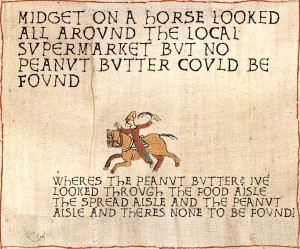 MIDGET ON A HORSE LOOKED
ALL AROUND THE LOCAL
SUPERMARKET BUT NO
PEANUT BUTTER COULD BE
FOUND
WHERES THE PEANUT BUTTER? IVE
LOOKED THROUGH THE FOOD AISLE
THE SPREAD AISLE AND THE PEANUT
AISLE AND THERES NONE TO BE FOUND!